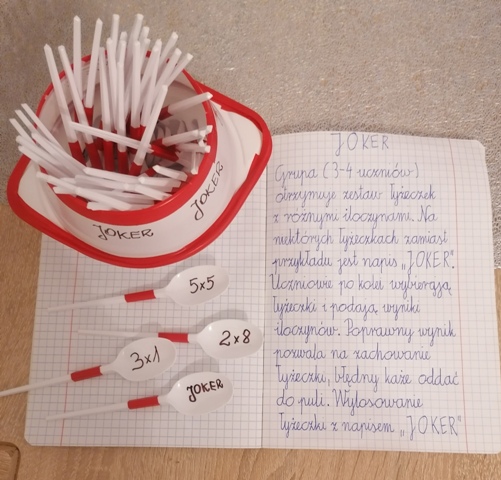 JOKER
JOKER
5x5
2x8
3x1
JOKER
JOKER
Grupa (3-4 uczniów)
otrzymuje zestaw łyżeczek
z różnymi iloczynami. Na
niektórych łyżeczkach zamiast
przykładu jest napis „JOKER".
Uczniowie po kolei wybierają
łyżeczki i podają wyniki
iloczynów. Poprawny wynik
pozwala na zachowanie
łyżeczki, błędny każe oddać
do puli. Wylosowanie
łyżeczki z napisem „JOKER"